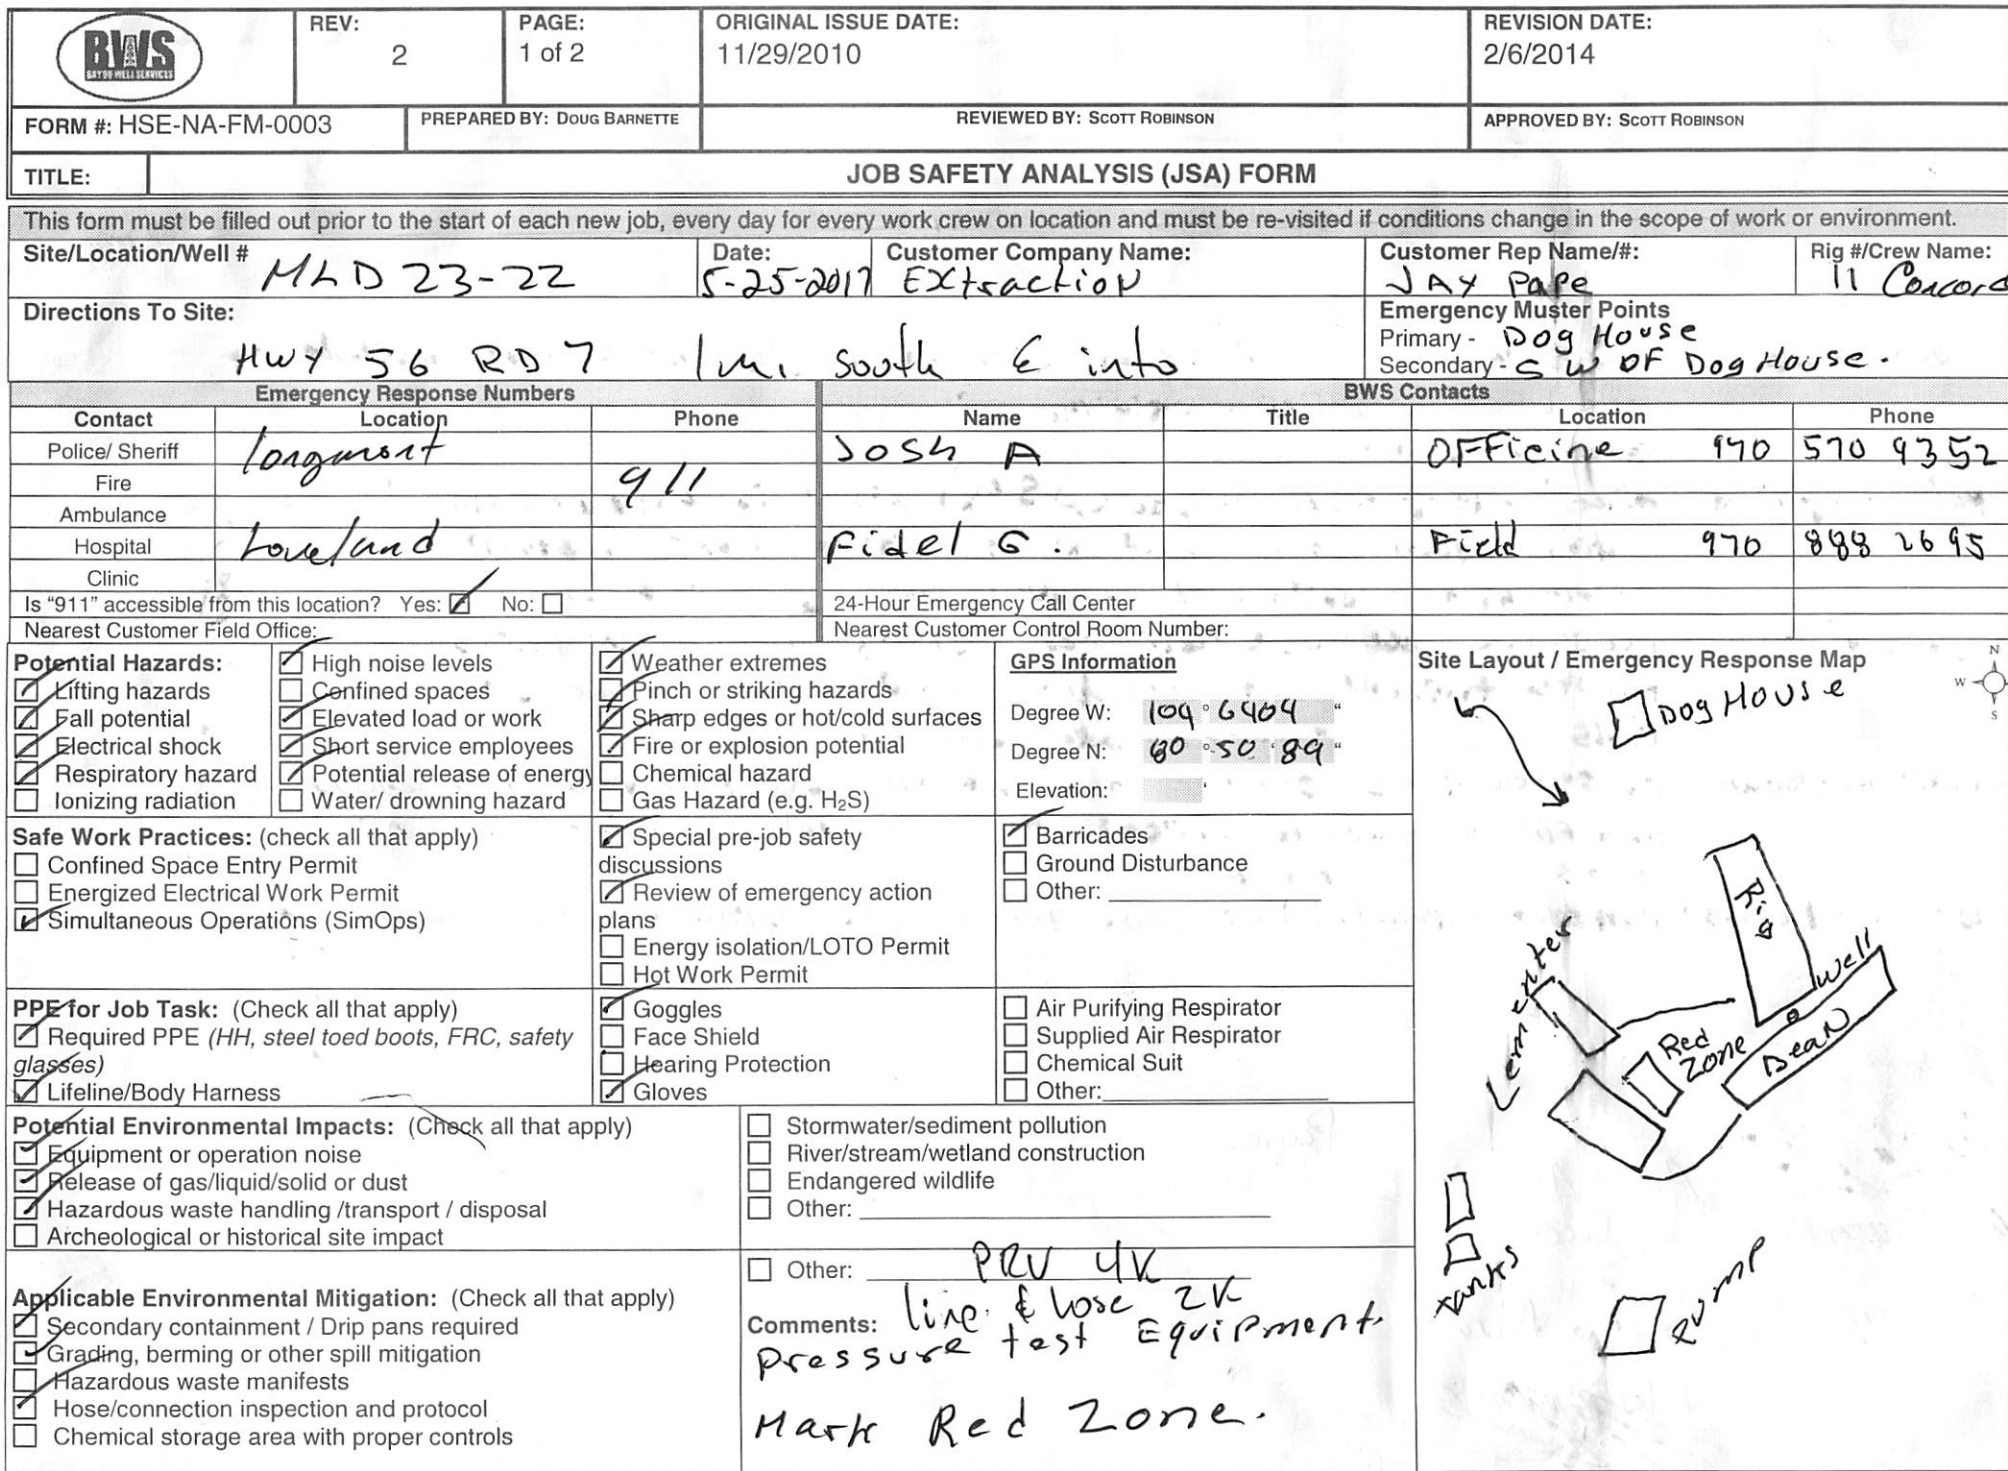 BWS
BAYOU WELL SERVICES
REV:
2
PAGE:
1 of 2
ORIGINAL ISSUE DATE:
11/29/2010
REVISION DATE:
2/6/2014
FORM #: HSE-NA-FM-0003
PREPARED BY: DOUG BARNETTE
REVIEWED BY: SCOTT ROBINSON
APPROVED BY: SCOTT ROBINSON
TITLE:
JOB SAFETY ANALYSIS (JSA) FORM
This form must be filled out prior to the start of each new job, every day for every work crew on location and must be re-visited if conditions change in the scope of work or environment.
Site/Location/Well #
MLD 23-22
Date:
5-25-2017
Customer Company Name:
EXtraction
Customer Rep Name/#:
JAY PaPe
Rig #/Crew Name:
11 Concord
Directions To Site:
HWY 56 RD 7 1 mi south E into
Emergency Muster Points
Primary - Dog House
Secondary - S W OF Dog House.
Emergency Response Numbers
BWS Contacts
Contact Location Phone
Name Title Location Phone
Police/ Sheriff longmont
Josh A OFFicine 970 570 9352
Fire 911
Ambulance
Hospital Loveland
Fidel G. Field 970 888 2695
Clinic
Is "911" accessible from this location? Yes: No:
24-Hour Emergency Call Center
Nearest Customer Field Office:
Nearest Customer Control Room Number:
Potential Hazards:
Lifting hazards
Fall potential
Electrical shock
Respiratory hazard
Ionizing radiation
High noise levels
Confined spaces
Elevated load or work
Short service employees
Potential release of energy
Water/ drowning hazard
Weather extremes
Pinch or striking hazards
Sharp edges or hot/cold surfaces
Fire or explosion potential
Chemical hazard
Gas Hazard (e.g. H₂S)
GPS Information
Degree W: 104 ° 6404 "
Degree N: ° 50 ' 89 "
Elevation: '
Site Layout / Emergency Response Map
N
W
S
Dog House
Rig
well
Red
Zone
Bean
Tanks
Pump
Safe Work Practices: (check all that apply)
Confined Space Entry Permit
Energized Electrical Work Permit
Simultaneous Operations (SimOps)
Special pre-job safety
discussions
Review of emergency action
plans
Energy isolation/LOTO Permit
Hot Work Permit
Barricades
Ground Disturbance
Other:
PPE for Job Task: (Check all that apply)
Required PPE (HH, steel toed boots, FRC, safety
glasses)
Lifeline/Body Harness
Goggles
Face Shield
Hearing Protection
Gloves
Air Purifying Respirator
Supplied Air Respirator
Chemical Suit
Other:
Potential Environmental Impacts: (Check all that apply)
Equipment or operation noise
Release of gas/liquid/solid or dust
Hazardous waste handling /transport / disposal
Archeological or historical site impact
Stormwater/sediment pollution
River/stream/wetland construction
Endangered wildlife
Other:
Applicable Environmental Mitigation: (Check all that apply)
Secondary containment / Drip pans required
Grading, berming or other spill mitigation
Hazardous waste manifests
Hose/connection inspection and protocol
Chemical storage area with proper controls
Other: PRV 4K
Comments: line & hose 2K
Pressure test Equipment.
Mark Red Zone.